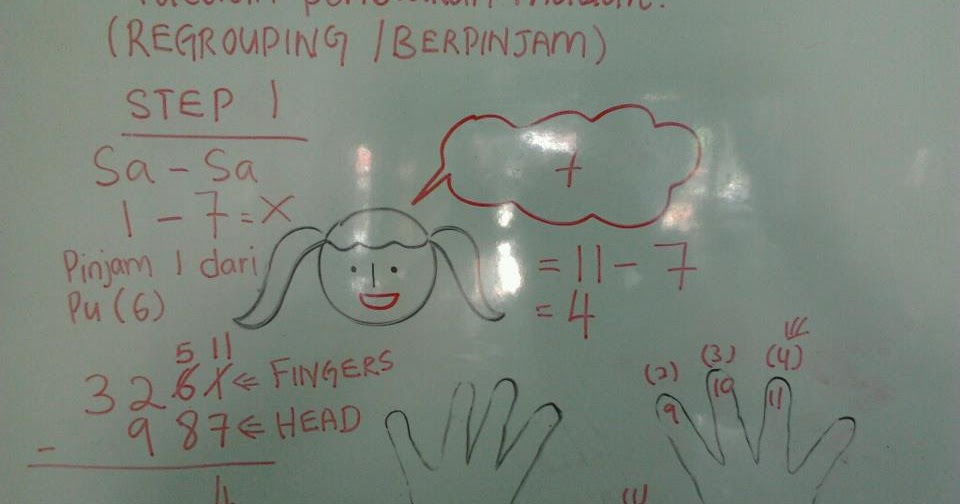 (REGROUPING / BERPINJAM)
STEP 1
Sa - Sa
1 - 7 = X
Pinjam 1 dari
Pu (6)
7
= 11 - 7
= 4
5 11
3 2 6 1 ⇐ FINGERS
- 9 8 7 ⇐ HEAD
4
(2) (3) (4)
9 10 11
(1)